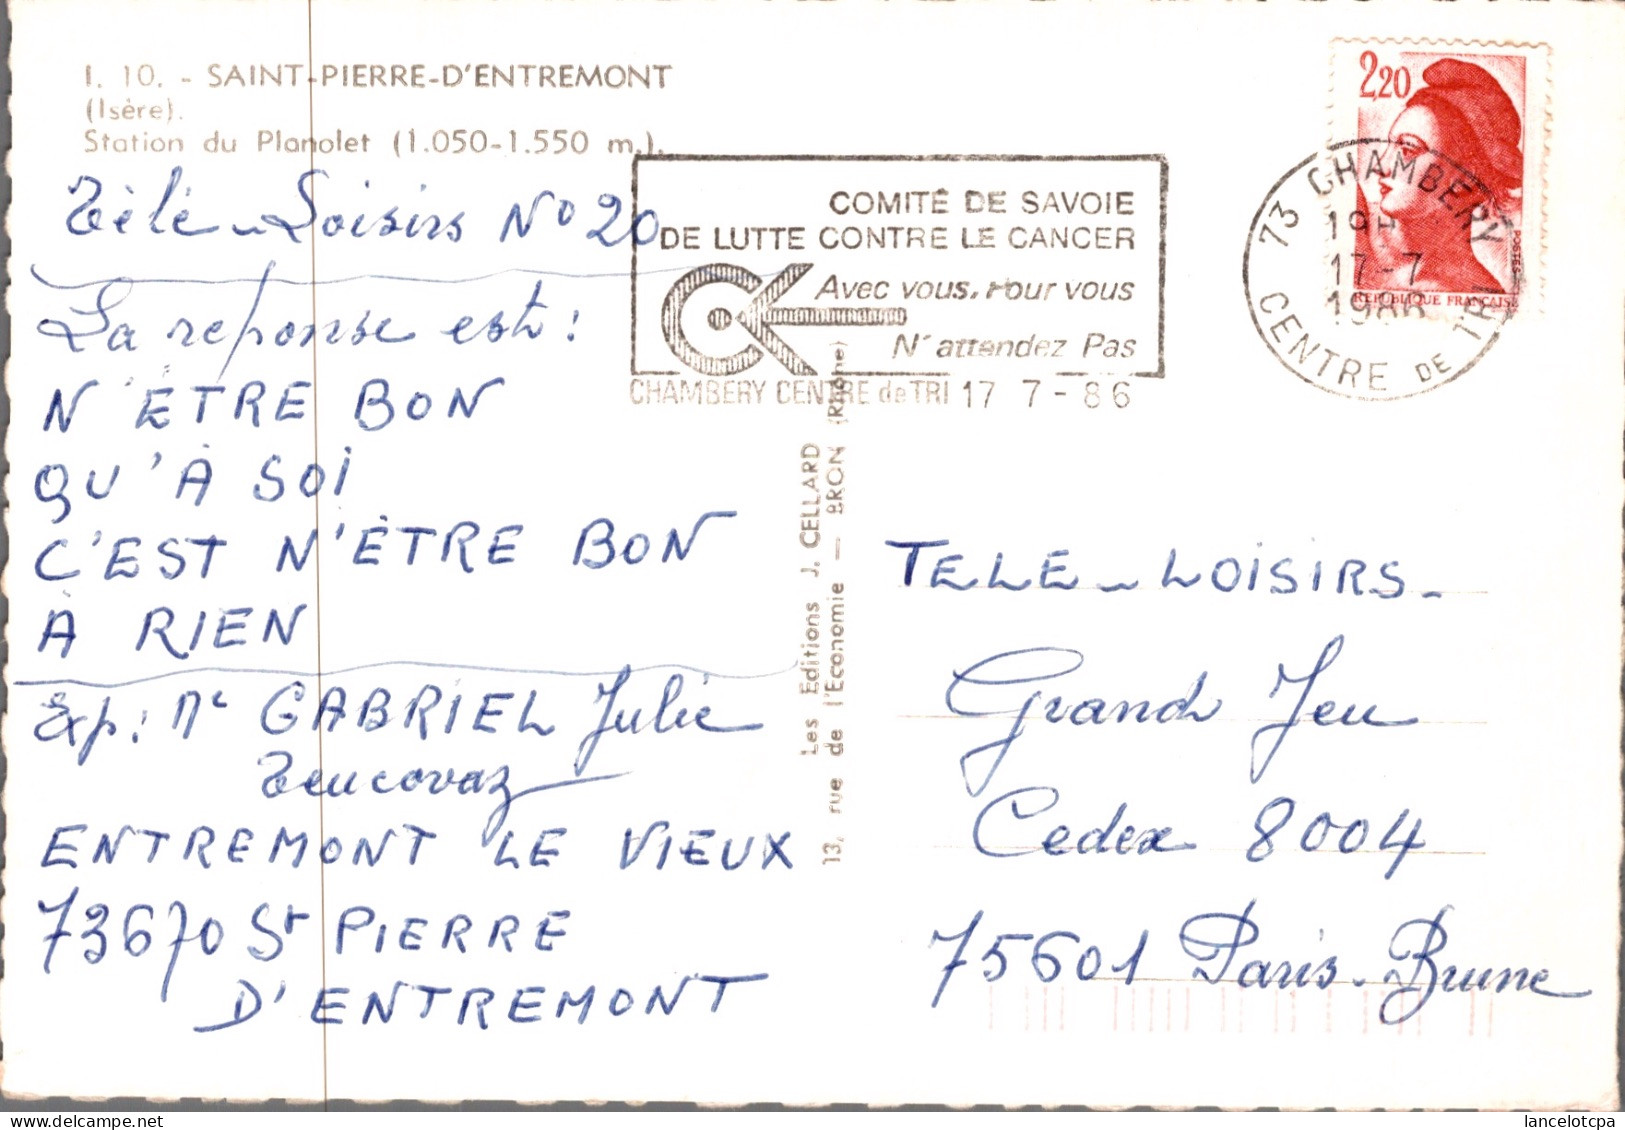 I. 10. - SAINT-PIERRE-D'ENTREMONT
(Isère).
Station du Planolet (1.050-1.550 m.).
Télé-Loisirs N° 20
La reponse est :
N'ÊTRE BON
QU'À SOI
C'EST N'ÊTRE BON
À RIEN
Exp: Me GABRIEL Julie
ENTREMONT LE VIEUX
73670 St PIERRE
D'ENTREMONT
COMITÉ DE SAVOIE
DE LUTTE CONTRE LE CANCER
Avec vous, Pour vous
N'attendez Pas
CHAMBERY CENTRE de TRI 17 7-86
Les Editions J. CELLARD
13, rue de l'Economie — BRON (Rhône)
2,20
POSTES
REPUBLIQUE FRANÇAISE
73 CHAMBERY
19H
17-7
1986
CENTRE DE TRI
TELE-LOISIRS-
Grand Jeu
Cedex 8004
75601 Paris-Brune
delcampe.net
lancelotcpa